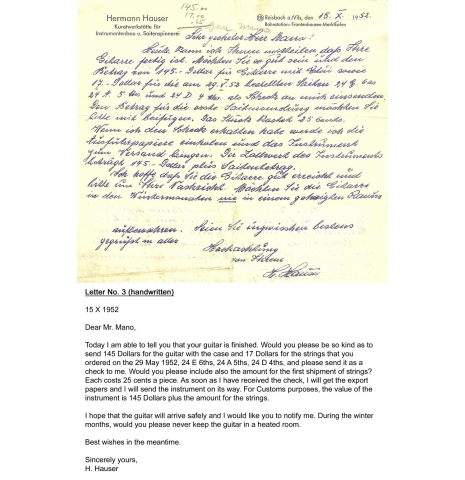 145.00
17.00
Hermann Hauser
Kunstwerkstätte für
Instrumentenbau u. Saitenspinnerei
Reisbach a./Vils, den 15. X. 1952.
Bahnstation: Frontenhausen-Marklkofen
Sehr geehrter Herr Mano!
Heute kann ich Ihnen mitteilen daß Ihre
Gitarre fertig ist. Möchten Sie so gut sein und den
Betrag von 145.- Dollar für Gitarre mit Etui sowie
17.- Dollar für die am 29.5.52 bestellten Saiten 24 E 6as
24 A. 5 und 24 D 4 als Scheck an mich senden.
Den Betrag für die erste Saitensendung möchten Sie
bitte mit beifügen. Das Stück kostet 25 Cents.
Wenn ich den Scheck erhalten habe werde ich die
Ausfuhrpapiere einholen und das Instrument
zum Versand bringen. Der Zollwert des Instruments
beträgt 145.- Dollar plus Saitenbetrag.
Ich hoffe daß Sie die Gitarre gut erreicht und
bitte um Ihre Nachricht. Möchten Sie die Gitarre
in den Wintermonaten nie in einem geheizten Raum
aufbewahren. Seien Sie inzwischen bestens
gegrüßt in aller
Hochachtung
von Ihrem
H. Hauser
Letter No. 3 (handwritten)
15 X 1952
Dear Mr. Mano,
Today I am able to tell you that your guitar is finished. Would you please be so kind as to
send 145 Dollars for the guitar with the case and 17 Dollars for the strings that you
ordered on the 29 May 1952, 24 E 6ths, 24 A 5ths, 24 D 4ths, and please send it as a
check to me. Would you please include also the amount for the first shipment of strings?
Each costs 25 cents a piece. As soon as I have received the check, I will get the export
papers and I will send the instrument on its way. For Customs purposes, the value of the
instrument is 145 Dollars plus the amount for the strings.
I hope that the guitar will arrive safely and I would like you to notify me. During the winter
months, would you please never keep the guitar in a heated room.
Best wishes in the meantime.
Sincerely yours,
H. Hauser